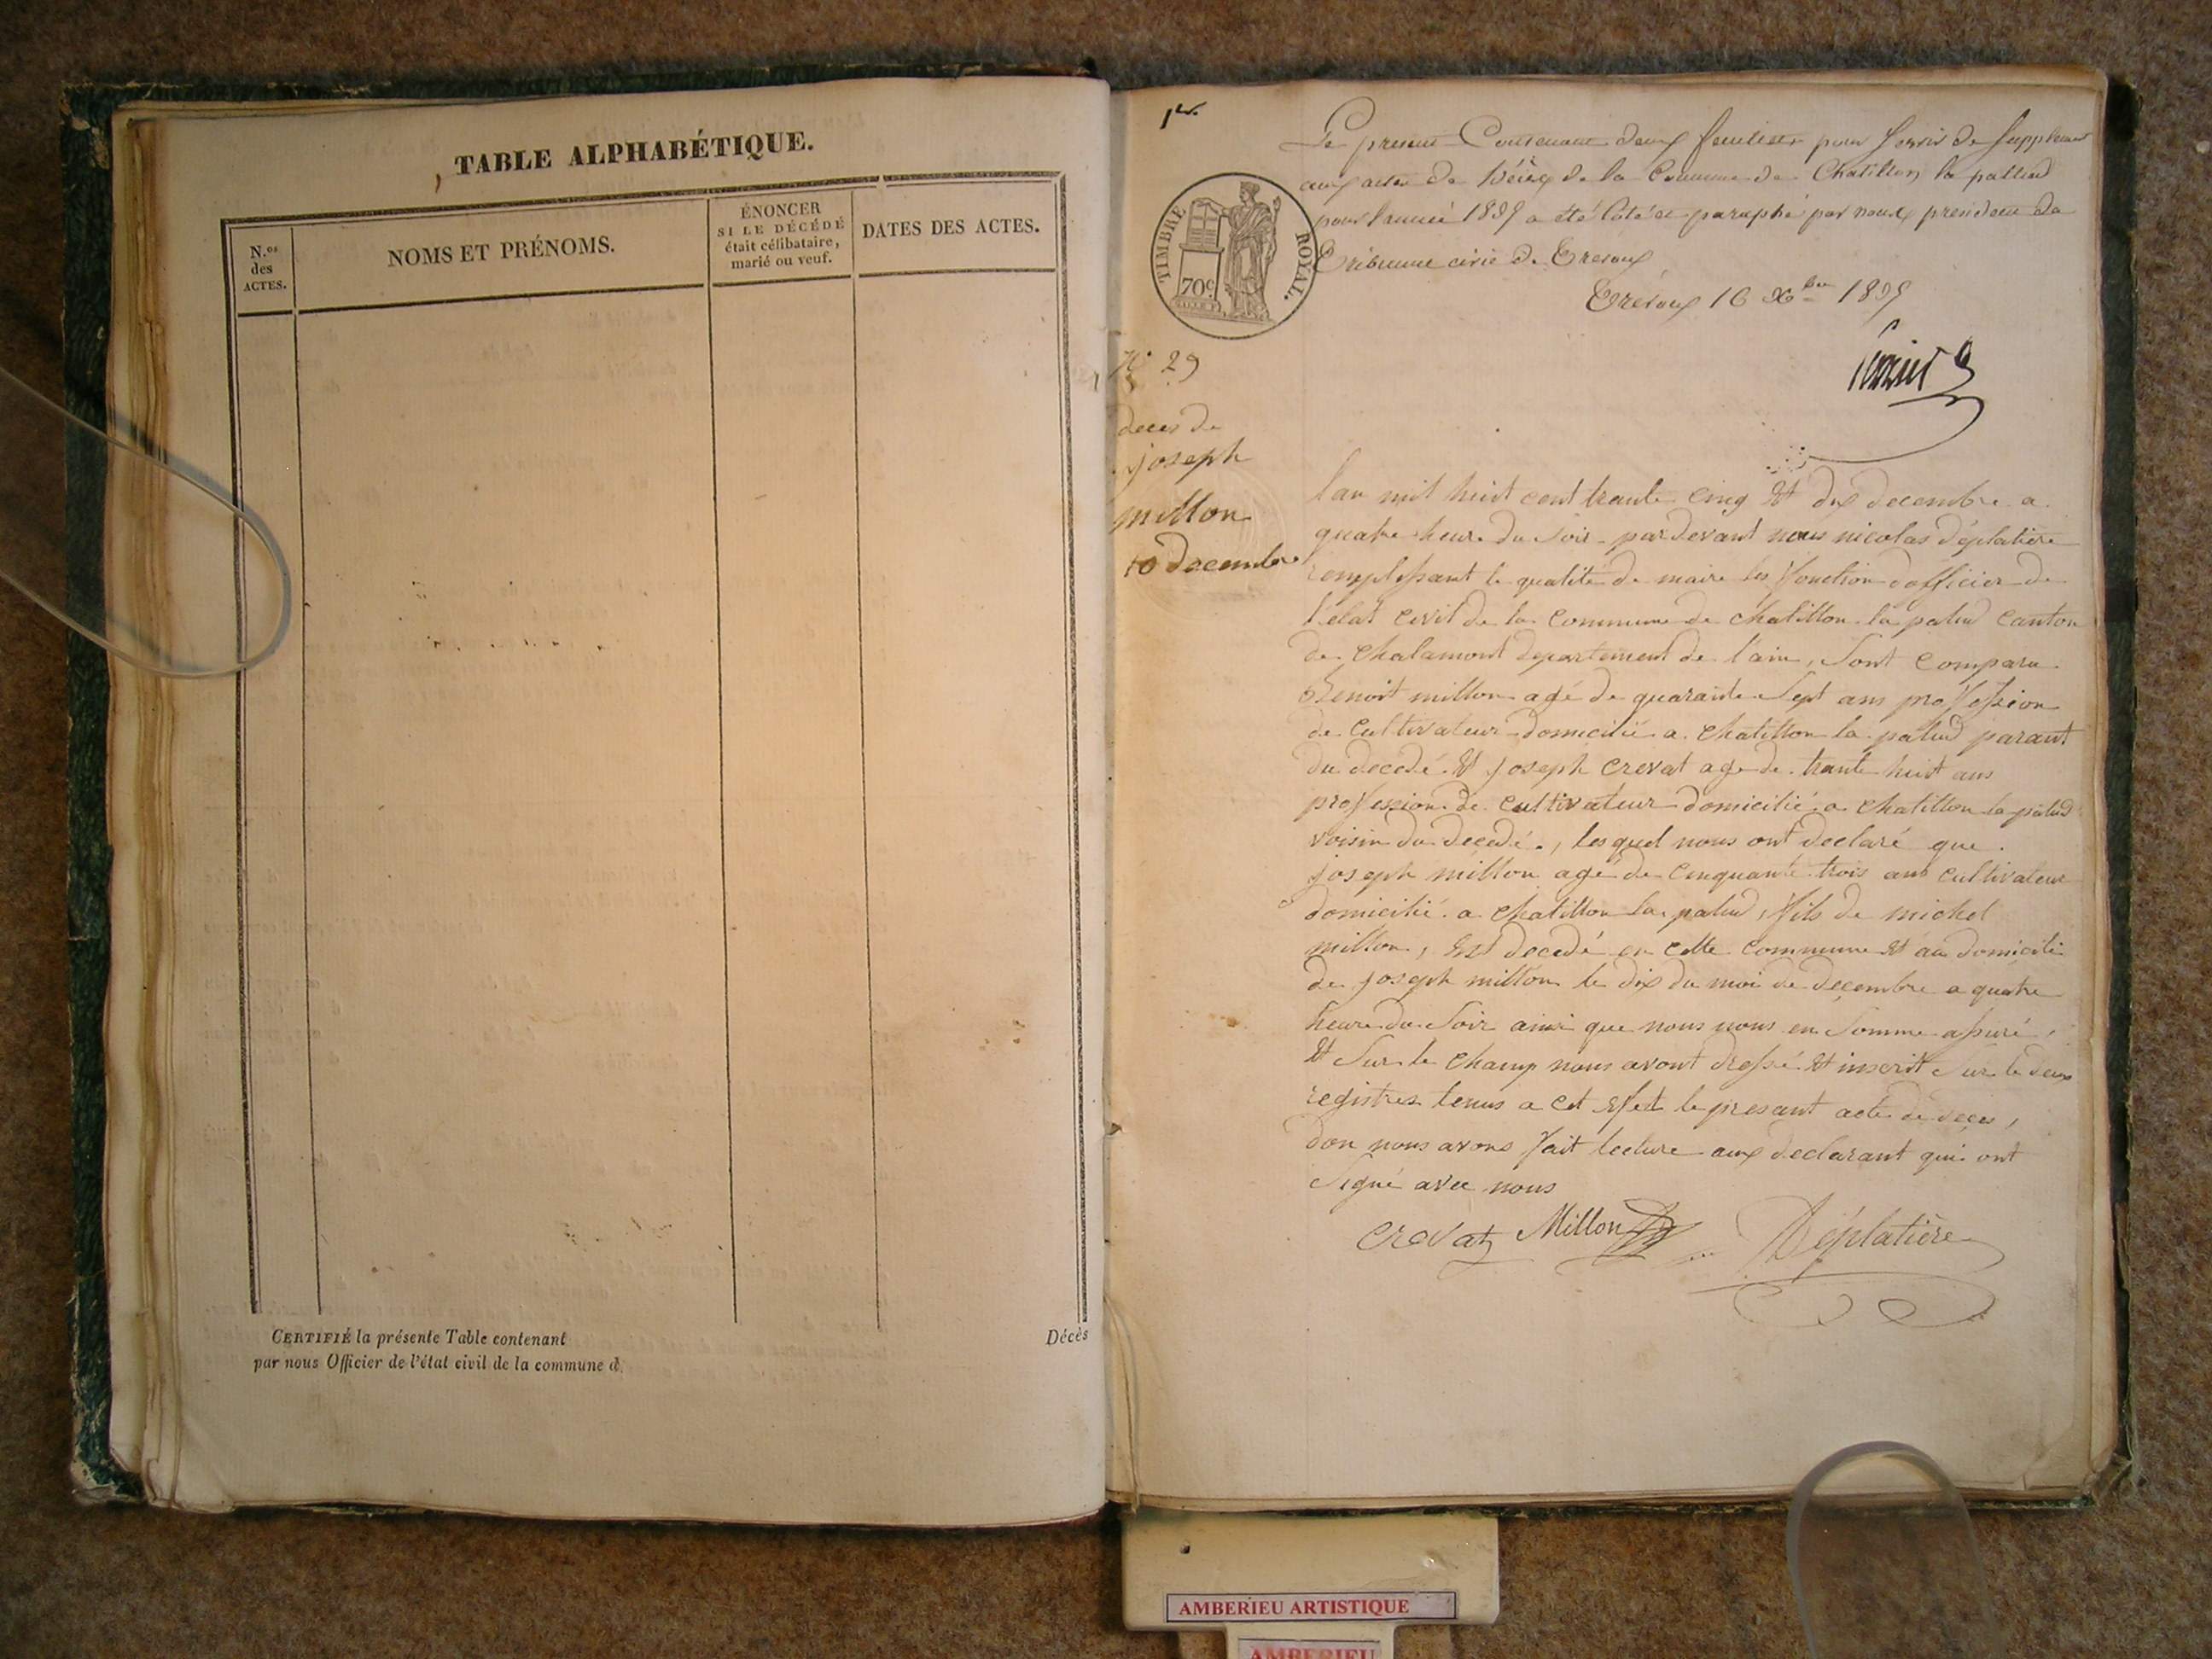 TABLE ALPHABÉTIQUE.
N.os
des
ACTES.
NOMS ET PRÉNOMS.
ÉNONCER
SI LE DÉCÉDÉ
était célibataire,
marié ou veuf.
DATES DES ACTES.
CERTIFIÉ la présente Table contenant
Décès
par nous Officier de l'état civil de la commune d
1er
Le present Contenant deux feuillets pour servir de supplement
aux actes de Décès de la Commune de Chatillon la pallud
pour l'année 1835 a été Coté et paraphé par nous president du
Tribunal civil de Trevoux
Trevoux 16 Xbre 1835
TIMBRE
ROYAL.
70c
No 29
deces de
joseph
millon
10 decembre
lan mil huit cent trante cinq et dix decembre a
quatre heure du soir pardevant nous nicolas déplatière
remplissant le qualité de maire les fonction dofficier de
létat civil de la Commune de chatillon la palud Canton
de Chalamont departement de lain, Sont comparu
Benoit millon agé de quarante Sept ans profession
de Cultivateur domicilié a Chatillon la palud parant
du decedé et joseph Crevat age de trante huit ans
profession de Cultivateur domicilié a Chatillon la palud
voisin du decedé, lesquel nous ont declaré que
joseph millon agé de Cinquante trois ans Cultivateur
domicilié a Chatillon la palud, fils de michel
millon, est decedé en cette commune et au domicile
de joseph millon le dix du moi de decembre a quatre
heure du Soir ainsi que nous nous en Somme assuré,
et Sur le Champ nous avont dressé et inscrit Sur le deux
registres tenus a cet effet le presant acte de deces,
don nous avons fait lecture aux declarant qui ont
Signé avec nous
crevat Millon Déplatière
AMBERIEU ARTISTIQUE
AMBERIEU